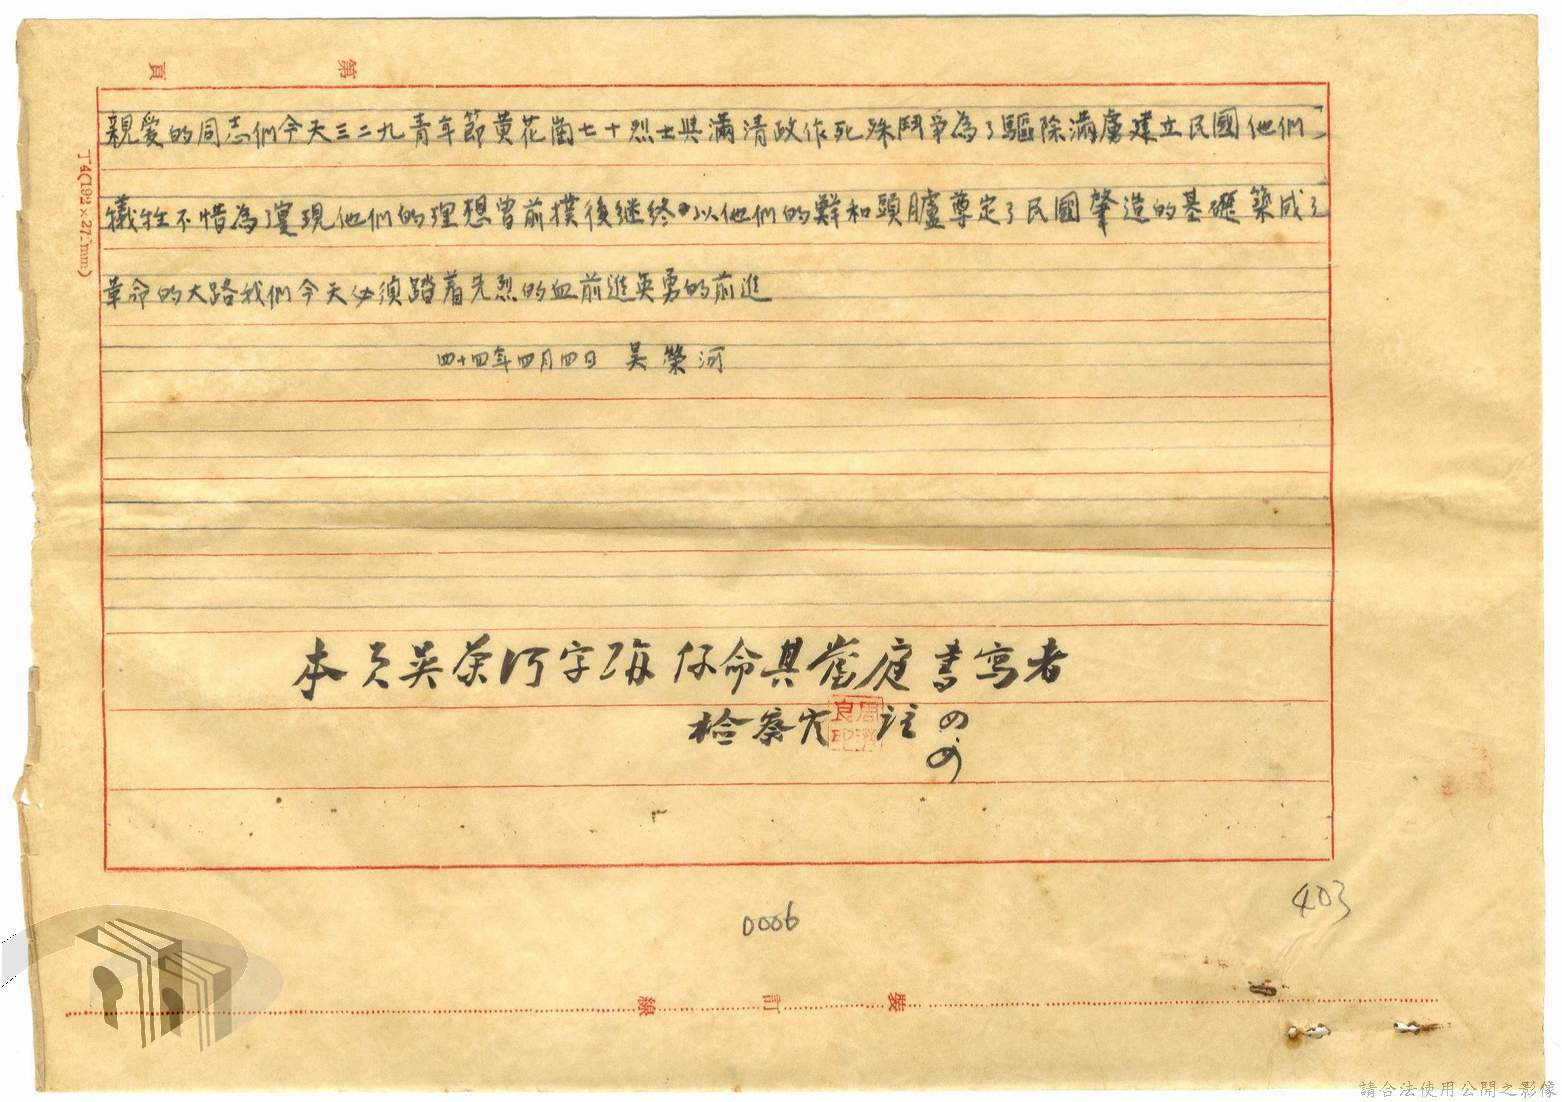 第 頁
親愛的同志們今天三二九青年節黃花崗七十烈士與滿清政作死殊鬥爭為了驅除滿虜建立民國他們
犧牲不惜為了實現他們的理想曾前撲後継終以他們的鮮和頭臚尊定了民國肇造的基礎築成了
革命的大路我們今天必須踏着先烈的血前進英勇的前進
四十四年四月四日 吴榮河
T4(192×27 mm)
本 吴荣河字 係命其當庭書寫者
檢察官 註
0006
403
裝 訂 線
請合法使用公開之影像